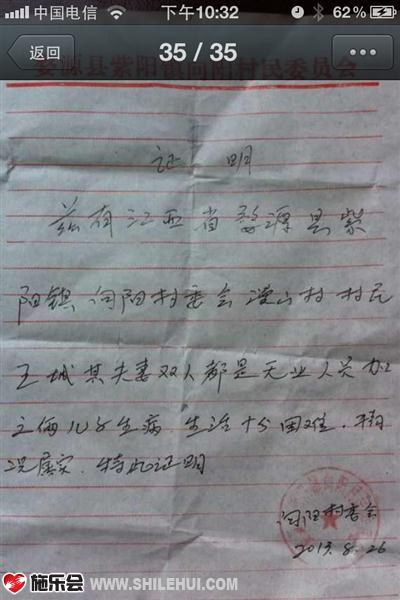 中国电信 下午10:32 62%
返回 35 / 35
婺源县紫阳镇向阳村民委员会
证 明
兹有江西省婺源县紫
阳镇向阳村委会渡山村 村民
王城其夫妻双人都是无业人员加
之俩儿子生病 生活十分困难. 情
况属实. 特此证明
向阳村委会
2013.8.26
施乐会 WWW.SHILEHUI.COM